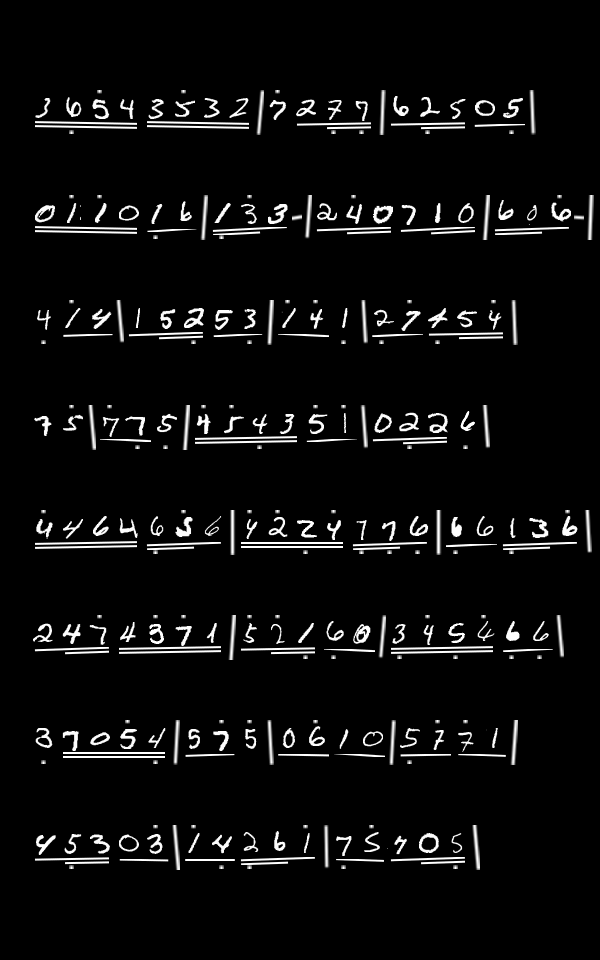 3 6 5 4 3 5 3 2 | 7 2 7 7 | 6 2 5 0 5 |
0 1 1 0 1 6 | 1 3 3 - | 2 4 0 7 1 0 | 6 0 6 - |
4 1 4 | 1 5 2 5 3 | 1 4 1 | 2 7 4 5 4 |
7 5 | 7 7 5 | 4 5 4 3 5 1 | 0 2 2 6 |
4 4 6 4 6 5 6 | 4 2 2 4 7 7 6 | 6 6 1 3 6 |
2 4 7 4 3 7 1 | 5 2 1 6 0 | 3 4 5 4 6 6 |
3 7 0 5 4 | 5 7 5 | 0 6 1 0 | 5 7 7 1 |
4 5 3 0 3 | 1 4 2 6 1 | 7 5 7 0 5 |